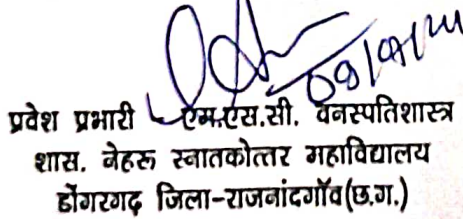 प्रवेश प्रभारी एम.एस.सी. वनस्पतिशास्त्र
शास. नेहरू स्नातकोत्तर महाविद्यालय
डोंगरगढ़ जिला-राजनांदगॉव(छ.ग.)